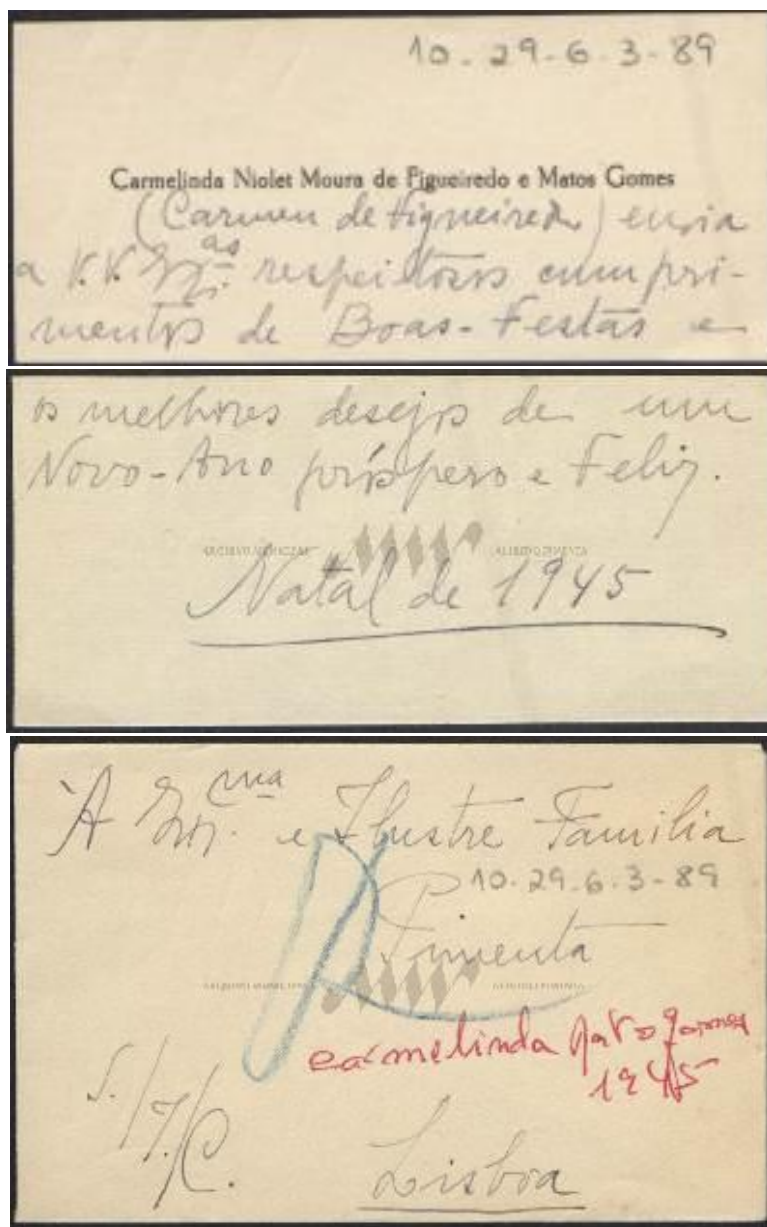 10-29-6-3-89
Carmelinda Niolet Moura de Figueiredo e Matos Gomes
(Carmen de Figueiredo) envia
a V.V. Ex.as respeitosos cumpri-
mentos de Boas-Festas e
os melhores desejos de um
Novo-Ano próspero e Feliz.
ALFREDO PIMENTA
Natal de 1945
À Ex.ma e Ilustre Familia
10-29-6-3-89
Pimenta
ALFREDO PIMENTA
Carmelinda Matos Gomes
1945
S./
C.
Lisboa